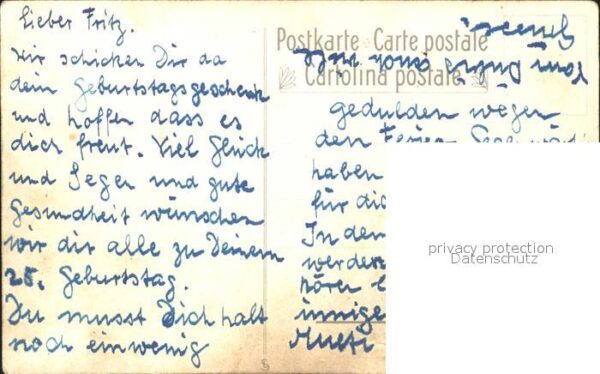 Lieber Fritz.
Wir schicken Dir da
dein Geburtstagsgeschenk
und hoffen dass es
dich freut. Viel Glück
und Segen und gute
Gesundheit wünschen
wir dir alle zu Deinem
25. Geburtstag.
Du musst Dich halt
noch einwenig
Postkarte · Carte postale
Cartolina postale
gedulden wegen
den
haben
für dich
In den
werden
hören
innige
Mutti
privacy protection
Datenschutz